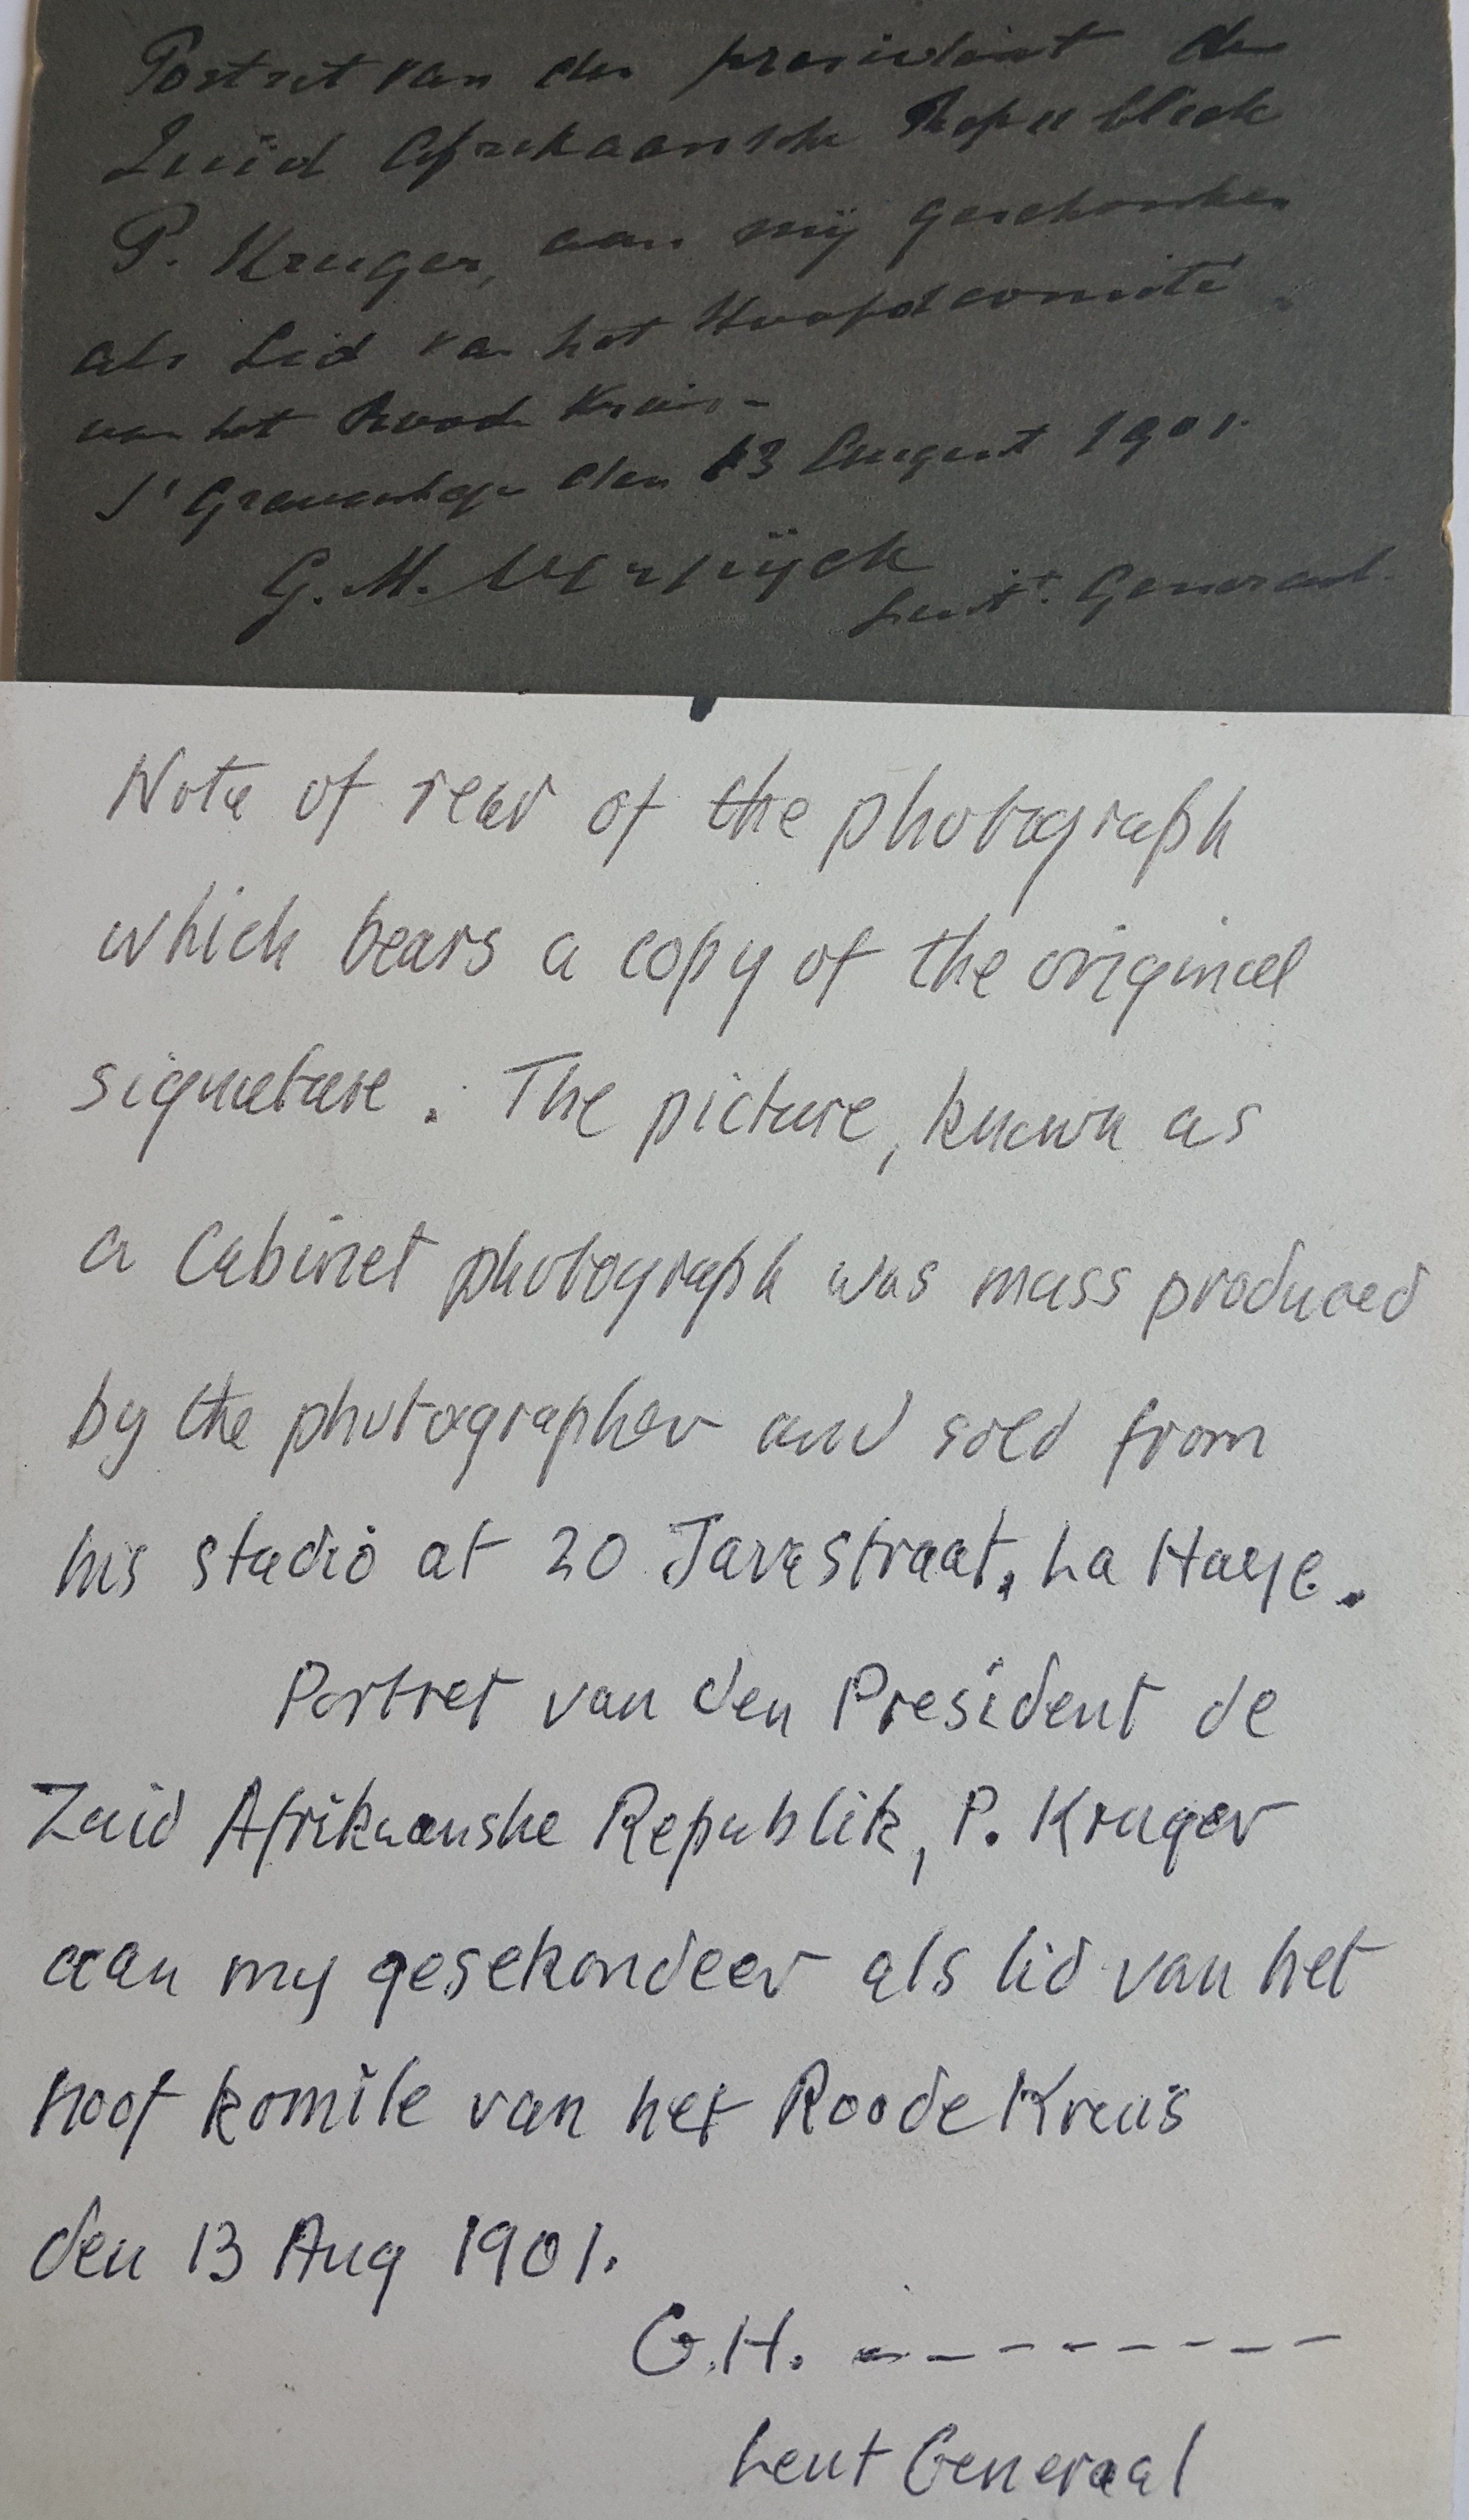 Portret van den president der
Zuid Afrikaansche Republiek
P. Kruger, aan mij geschonken
als Lid van het Hoofdcomité
van het Roode Kruis -
s' Gravenhage den 13 August 1901.
G. M. Verspijck
Luit. Generaal.
Note of rear of the photograph
which bears a copy of the original
signature. The picture, known as
a Cabinet photograph was mass produced
by the photographer and sold from
his studio at 20 Javastraat, La Haye.
Portret van den President de
Zuid Afrikaanshe Republik, P. Kruger
aan my gesekondeer als lid van het
hoof komite van het Roode Kruis
den 13 Aug 1901.
G.H. ---------
Leut Generaal